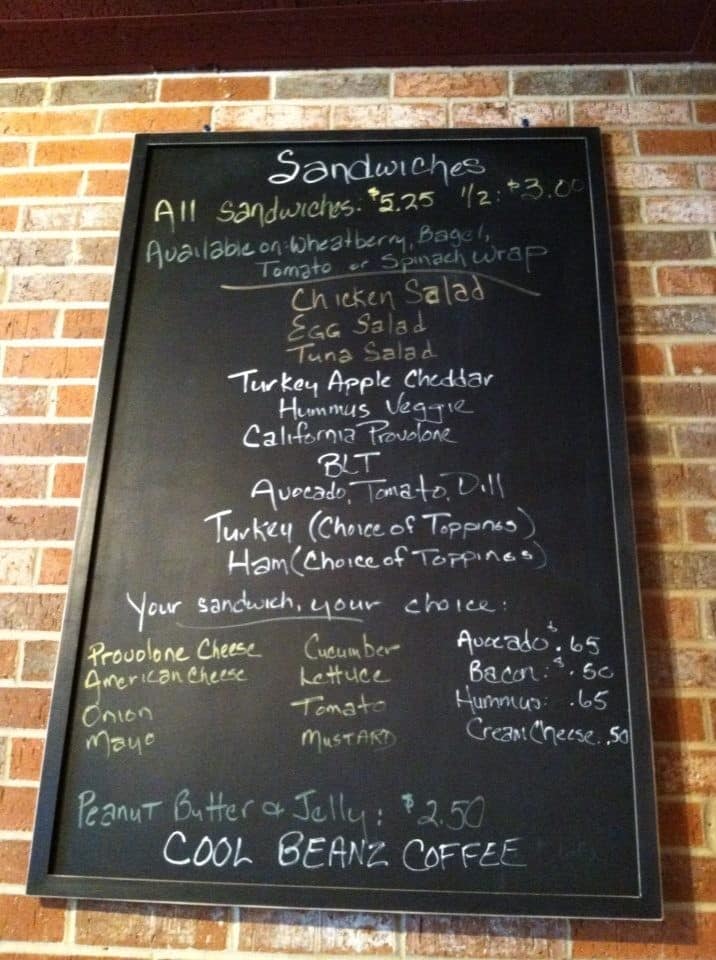 Sandwiches
All Sandwiches: $5.25 1/2: $3.00
Available on: Wheatberry, Bagel,
Tomato or Spinach wrap
Chicken Salad
Egg Salad
Tuna Salad
Turkey Apple Cheddar
Hummus Veggie
California Provolone
BLT
Avocado, Tomato, Dill
Turkey (Choice of Toppings)
Ham (Choice of Toppings)
Your sandwich, your choice:
Provolone Cheese Cucumber Avocado $.65
American Cheese Lettuce Bacon: $.50
Onion Tomato Hummus: .65
Mayo Mustard Cream Cheese: .50
Peanut Butter & Jelly: $2.50
COOL BEANZ COFFEE